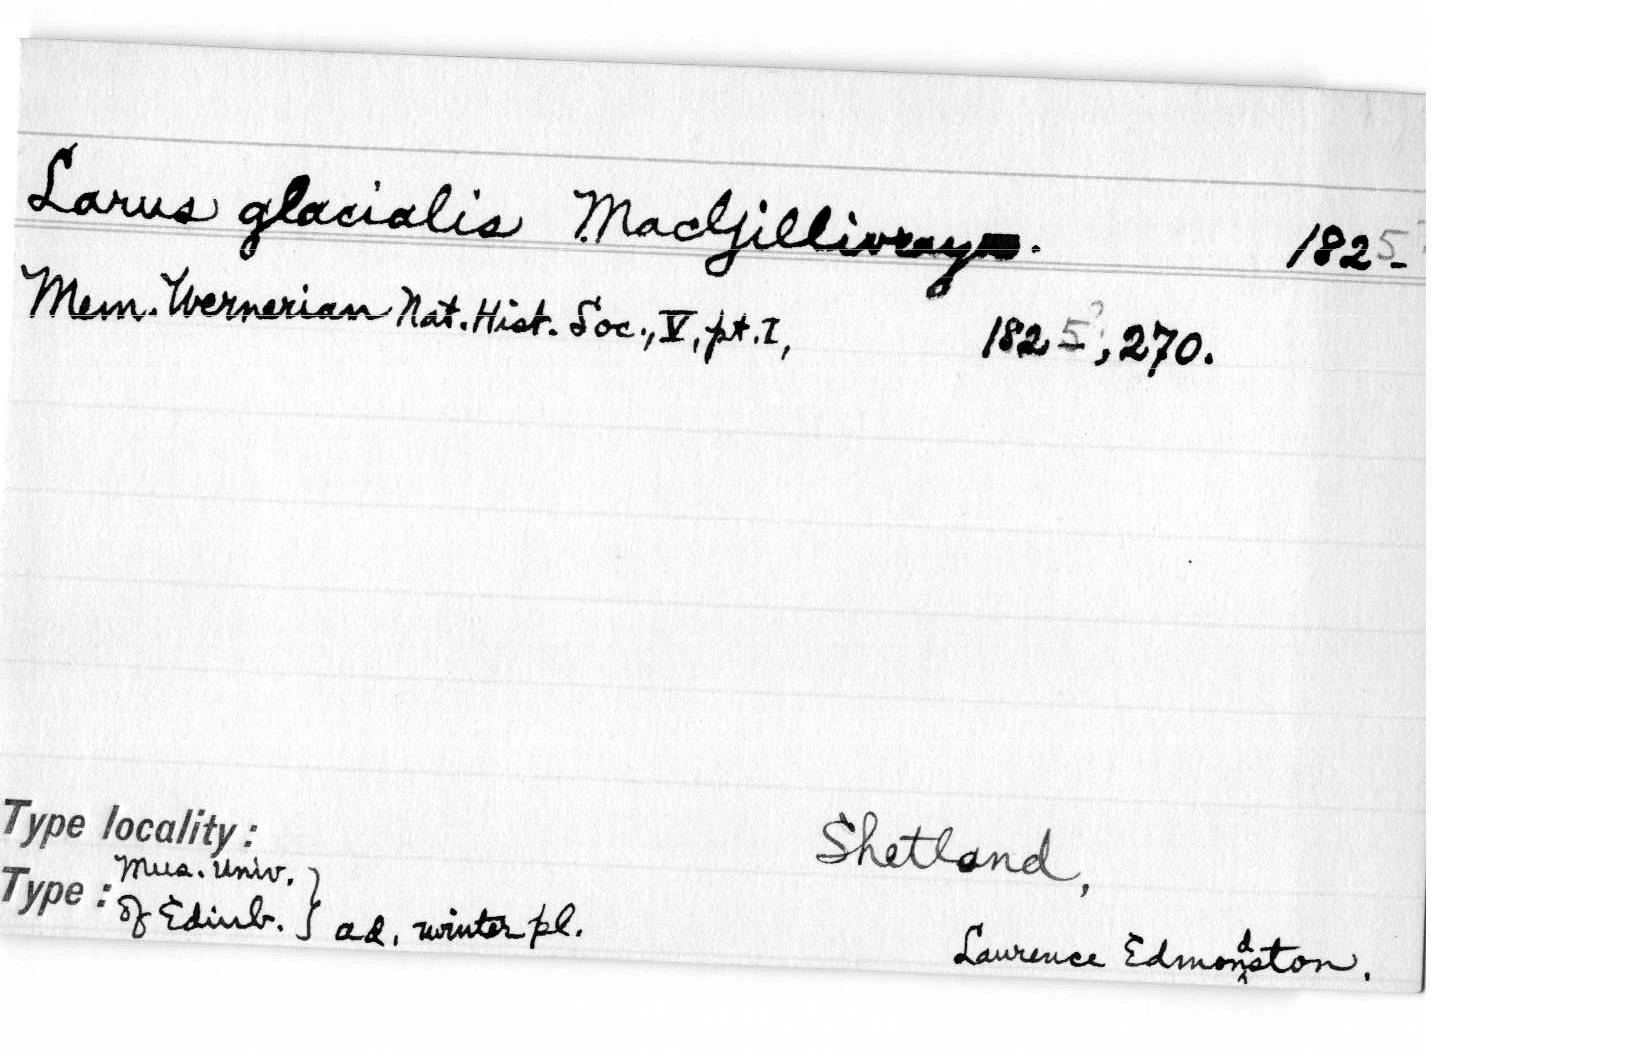 Larus glacialis MacGillivray. 1825?
Mem. Wernerian Nat. Hist. Soc., V, pt. I, 1825?, 270.
Type locality: Shetland,
Type: Mus. Univ. of Edinb. } ad. winter pl.
Laurence Edmondston.